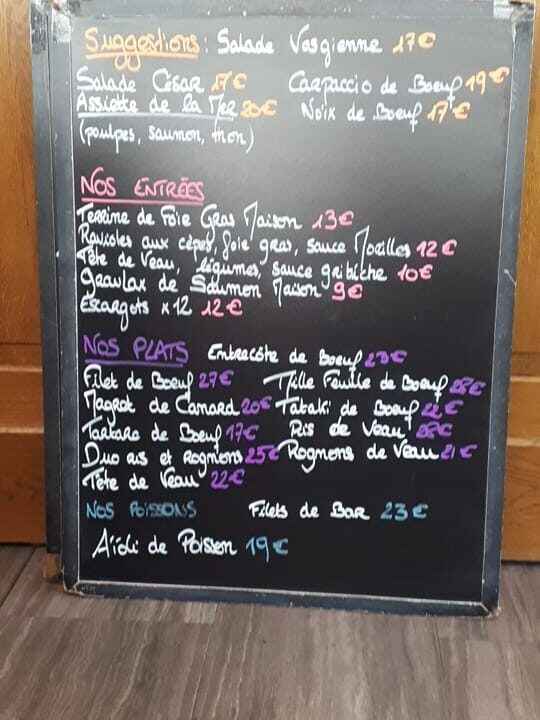 Suggestions: Salade Vosgienne 17€
Salade César 17€ Carpaccio de Boeuf 19€
Assiette de la Mer 20€ Noix de Boeuf 17€
(poulpes, saumon, thon)
NOS ENTRÉES
Terrine de Foie Gras Maison 13€
Ravioles aux cèpes, foie gras, sauce Morilles 12€
Tête de Veau, légumes, sauce gribiche 10€
Gravlax de Saumon Maison 9€
Escargots x12 12€
NOS PLATS Entrecôte de boeuf 23€
Filet de Boeuf 27€ Mille Feuille de Boeuf 28€
Magret de Canard 20€ Tataki de Boeuf 22€
Tartare de Boeuf 17€ Ris de Veau 28€
Duo ris et Rognons 25€ Rognons de Veau 21€
Tête de Veau 22€
NOS POISSONS Filets de Bar 23€
Aïoli de Poisson 19€